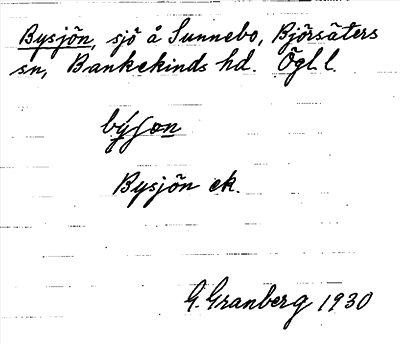 Bysjön, sjö å Sunnebo, Björsäters
sn, Bankekinds hd. Ögl l.
Bysjön ek.
G. Granberg 1930